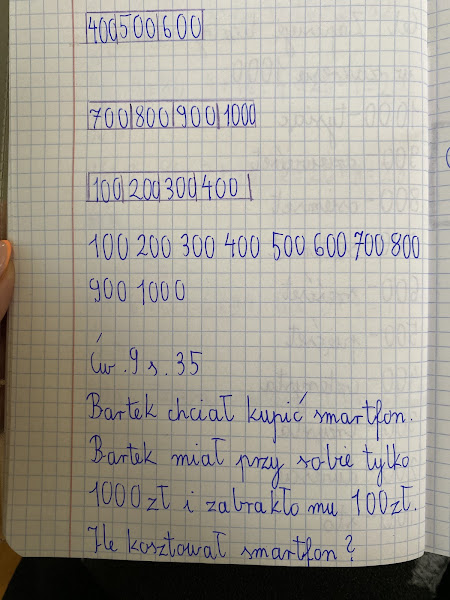 400 500 600
700 800 900 1000
100 200 300 400
100 200 300 400 500 600 700 800
900 1000
Ćw. 9 s. 35
Bartek chciał kupić smartfon.
Bartek miał przy sobie tylko
1000 zł i zabrakło mu 100 zł.
Ile kosztował smartfon?